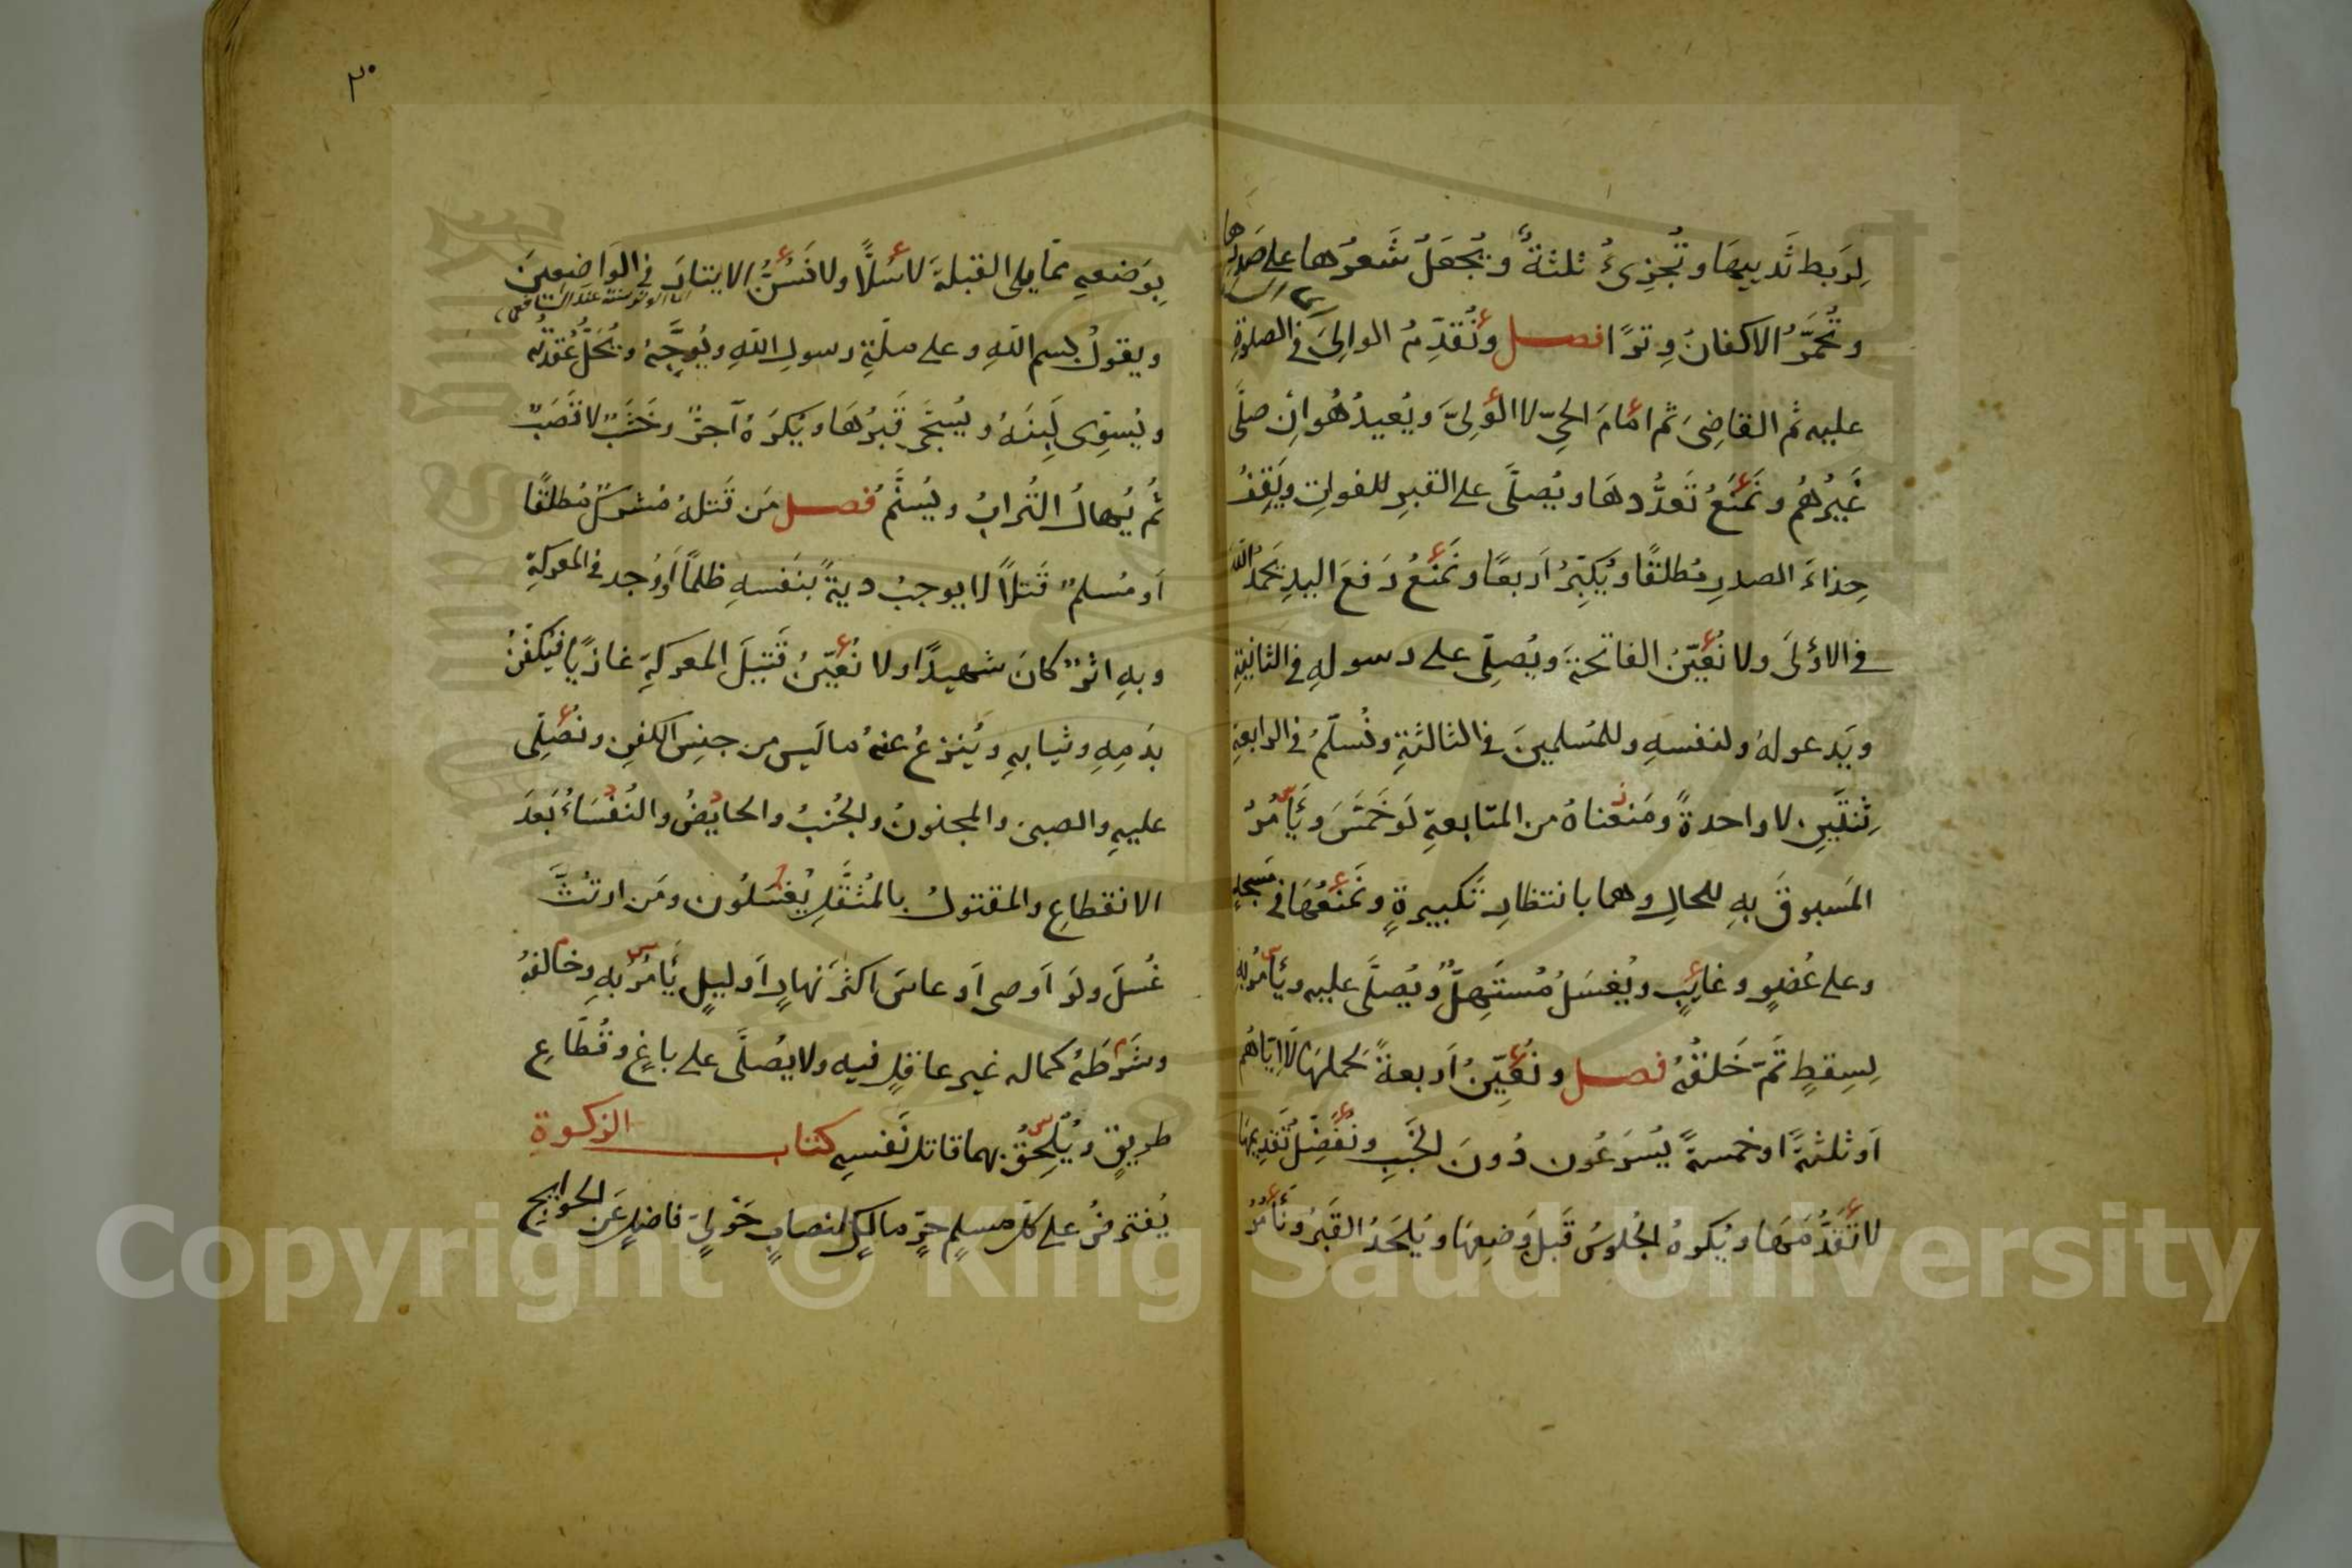 لِرَبط ثَدييهَا وتُجزِئُ ثلثةٌ ويُجعَلُ شَعرُهَا على صَدرِهَا
وتُجَمَّرُ الاكفانُ وِترًا فصل ونُقَدِّمُ الوالِىَ فى الصلوةِ
عليه ثم القاضِىَ ثم امامَ الحىّ لا الوَلِىَّ ويُعيدُ هُو اِن صلَّى
غَيرُهُم ونَمنَعُ تَعدُّدهَا ويُصلَّى على القبرِ للفواتِ ويَقِفُ
حِذاءَ الصدرِ مُطلقًا ويُكبِّرُ اَربعًا ونَمنَعُ رَفعَ اليدِ يَحمَدُ اللّٰهَ
فى الاولَى ولا نُعَيّنُ الفاتحةَ ويُصلِّى على رسولهِ فى الثانيةِ
ويَدعو لهُ ولنفسهِ وللمُسلمينَ فى الثالثةِ ونُسلّمُ فى الرابعةِ
ثِنتَينِ لا واحدةً ومَنعناهُ من المتابعةِ لَو خَمَّسَ ويَأمُرُ
المَسبوقَ بهِ للحالِ وهما بانتظارِ تَكبيرةٍ ونَمنَعُهَا فى مَسجدٍ
وعلى عُضوٍ وغايبٍ ويُغسَلُ مُستَهِلٌّ ويُصلَّى عليه ويَأمُرُ بهِ
لِسِقطٍ تَمَّ خَلقُهُ فصل ونُعَيِّنُ اَربعةً لحملهَا لا اِيّاهُم
اَو ثلثةً او خمسةً يُسرَعُون دُونَ الخَبَبِ ونُفَضِّلُ تَقدِيمهَا
لا تَقَدُّمَهَا ويُكرهُ الجُلوسُ قَبلَ وَضعِهَا ويُلحَدُ القَبرُ ونَأمُرُ
٣٠
بِوَضعهِ ممّا يلى القبلةَ لا سُلًّا ولا نَسُنُّ الايتارَ فى الوَاضِعِينَ
اما الوتر سنة عند الشافعى
ويقولُ بسم اللّٰهِ وعلى ملّةِ رسولِ اللّٰهِ ويُوجَّهُ وتُحَلُّ عُقدتُه
ويُسَوِّى لَبِنَهُ ويُسجَّى قَبرُهَا ويُكرَهُ آجرٌّ وخَشَبٌ لا قَصَبٌ
ثُم يُهالُ التُرابُ ويُسنَّمُ فصل مَن قَتلهُ مُشركٌ مُطلقًا
اَو مُسلمٌ قَتلًا لا يوجبُ ديةً بنَفسهِ ظلمًا اَو وُجد فى المعركةِ
وبهِ اثرٌ كانَ شهيدًا ولا نُعَيّنُ قَتيلَ المعركةِ غازيًا فيُكفَّنُ
بدَمِهِ وثيابهِ ويُنزعُ عنهُ ما لَيس من جنسِ الكفنِ ونُصلِّى
عليهِ والصبىّ والمجنونُ والجُنبُ والحايضُ والنُفَسَاءُ بَعدَ
الانقطاعِ والمقتولُ بالمُثقَّلِ يُغسَلُون ومَن ارتُثَّ
غُسلَ ولَو اَوصى اَو عاشَ اكثرَ نهارٍ اَو ليلٍ يَأمُرُ بهِ وخالفهُ
وشَرَطَهُ كماله غير عاقلٍ فيه ولا يُصلَّى على باغٍ وقُطّاعِ
طريقٍ ويُلحِقُ بهما قاتل نَفسهِ كتاب الزكوة
يُفترضُ على كلّ مسلمٍ حرٍّ مالكٍ لنصابٍ حَولىٍّ فاضلٍ عَن الحوايج
Copyright © King Saud University